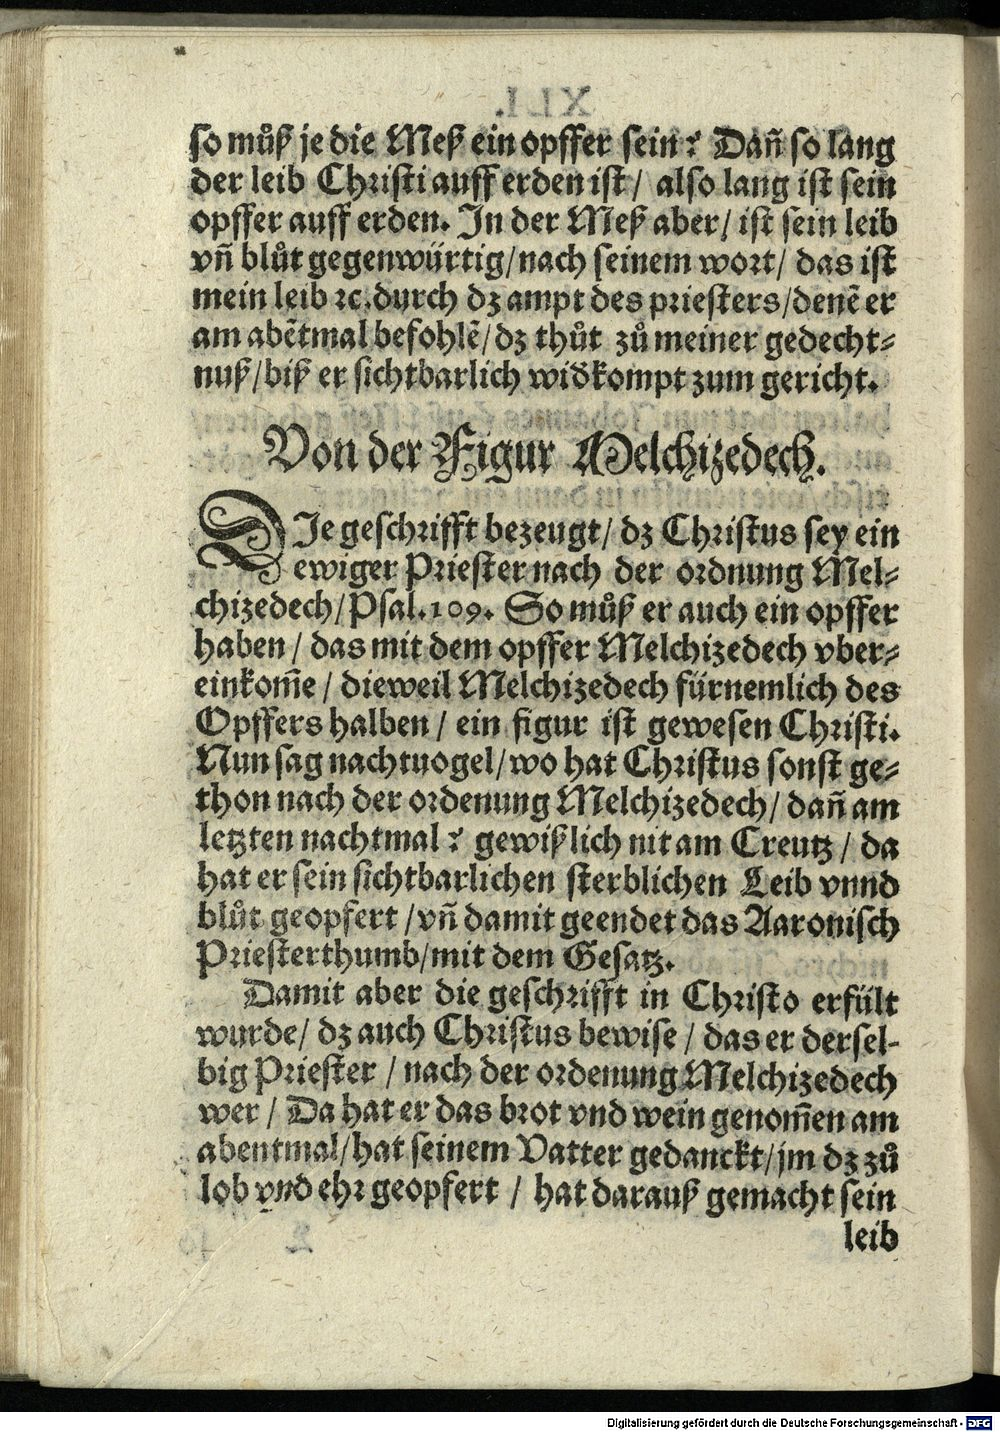 so můß je die Meß ein opffer sein? Dañ so lang
der leib Christi auff erden ist / also lang ist sein
opffer auff erden. In der Meß aber / ist sein leib
vñ blůt gegenwürtig / nach seinem wort / das ist
mein leib ꝛc. durch dz ampt des priesters / denẽ er
am abẽtmal befohlẽ / dz thůt zů meiner gedecht⸗
nuß / biß er sichtbarlich widkompt zum gericht.
Von der Figur Melchizedech.
DIe geschrifft bezeugt / dz Christus sey ein
ewiger Priester nach der ordnung Mel⸗
chizedech / Psal. 109. So můß er auch ein opffer
haben / das mit dem opffer Melchizedech vber⸗
einkom̃e / dieweil Melchizedech fürnemlich des
Opffers halben / ein figur ist gewesen Christi.
Nun sag nachtuogel / wo hat Christus sonst ge⸗
thon nach der ordenung Melchizedech / dañ am
letzten nachtmal? gewißlich nit am Creutz / da
hat er sein sichtbarlichen sterblichen Leib vnnd
blůt geopfert / vñ damit geendet das Aaronisch
Priesterthumb / mit dem Gesatz.
Damit aber die geschrifft in Christo erfült
wurde / dz auch Christus bewise / das er dersel-
big Priester / nach der ordenung Melchizedech
wer / Da hat er das brot vnd wein genom̃en am
abentmal / hat seinem Vatter gedanckt / jm dz zů
lob vnd ehr geopfert / hat darauß gemacht sein
leib
Digitalisierung gefördert durch die Deutsche Forschungsgemeinschaft - DFG